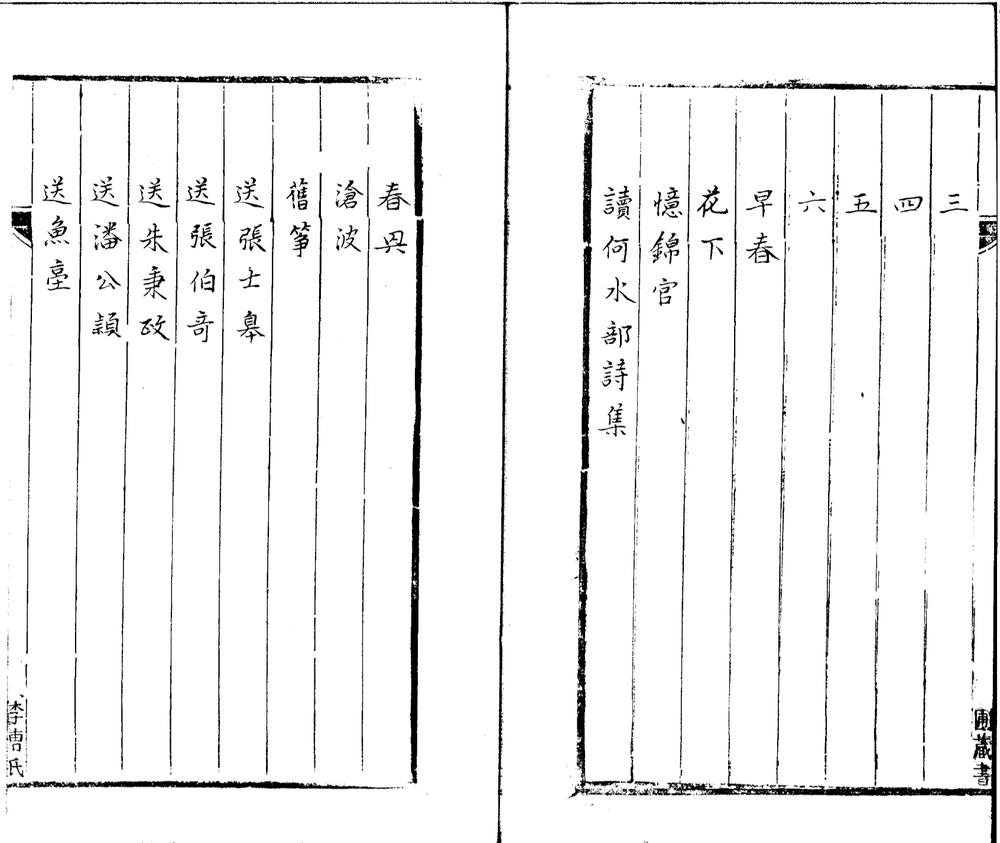 三
四
五
六
早春
花下
憶錦官
讀何水部詩集
圃藏書
春
滄波
舊箏
送張士臯
送張伯竒
送朱秉政
送潘公頴
送魚臺
李曹氏